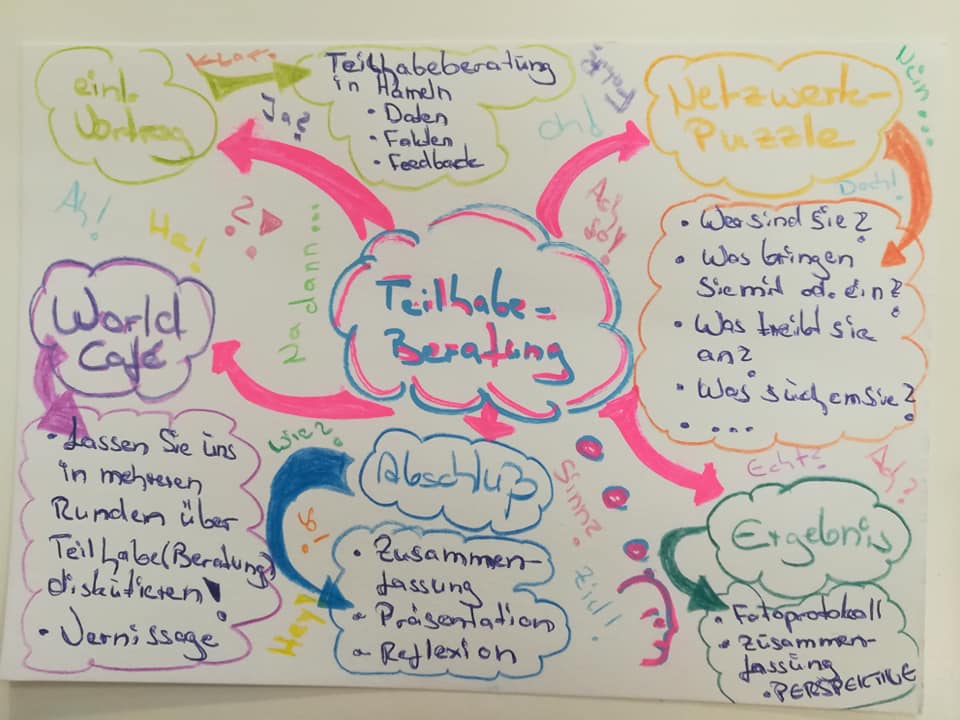 einl.
Vortrag
Klar.
Teilhabeberatung
in Hameln
• Daten
• Fakten
• Feedback
Ja?
Och!
Netzwerk-
Puzzle
Nein...
Doch!
• Wer sind Sie?
• Was bringen
Sie mit od. ein?
• Was treibt sie
an?
• Was suchen sie?
• ...
Ach
so!
Ah!
He!
?
Na dann...
Teilhabe-
Beratung
World
Café
• Lassen Sie uns
in mehreren
Runden über
Teilhabe(Beratung)
diskutieren!
• Vernissage
Wie?
Hey!
Abschluß
• Zusammen-
fassung
• Präsentation
• Reflexion
Sinn?
Ziel!
Echt?
Ach?
Ergebnis
• Fotoprotokoll
• Zusammen-
fassung
• PERSPEKTIVE